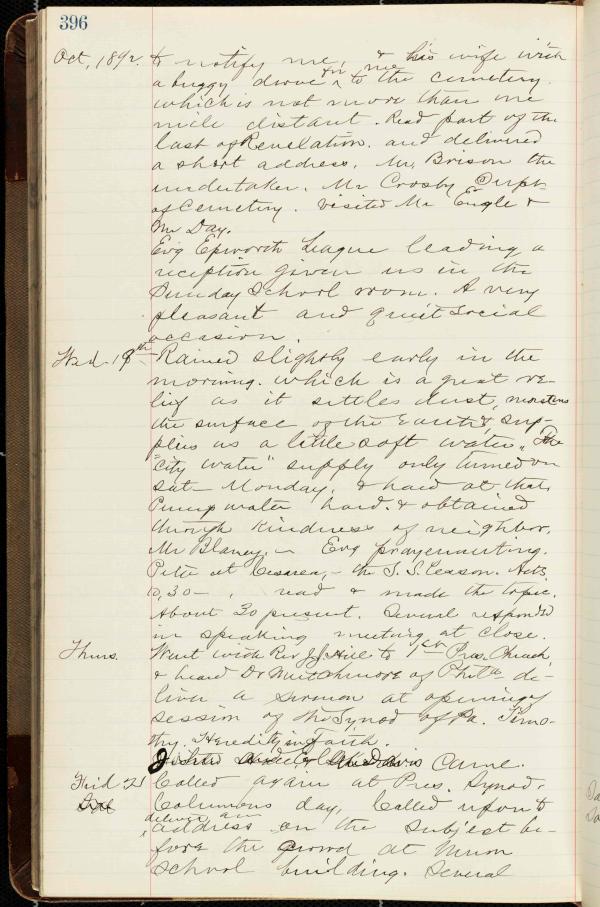 396
Oct, 1892. to notify me, & his wife with
a buggy drove for me to the cemetery
which is not more than one
mile distant. Read part of the
last of Revelation. and delivered
a short address. Mr. Brison the
undertaker. Mr Crosby Supt-
of Cemetery. Visited Mr Engle &
Mr Day.
Evg Epworth League leading a
reception given us in the
Sunday School room. A very
pleasant and quiet social
occasion.
Wed. 19th Rained slightly early in the
morning. which is a great re-
lief as it settles dust, moistens
the surface of the Earth & sup-
plies us a little soft water. The
"City water" supply only turned on
Sat- Monday, & hard at that.
Pump water hard. & obtained
through kindness of neighbor,
Mr Blaney. - Evg prayermeeting.
Peter at Cesarea, - the S. S. Lesson. Acts
10,30-, read & made the topic.
About 30 present. Several responded
in speaking meeting at close.
Thurs. Went with Rev J.J. Hill to 1st Pres. Church,
& heard Dr Mutchmore of Phila- de-
liver a sermon at opening of
session of the Synod of Pa. Timo-
thy. "Heredity in Faith.
came.
Frid. 21 Called again at Pres. Synod,
Columbus day, Called upon to
deliver an
address on the subject be-
fore the crowd at Union
School building. Several